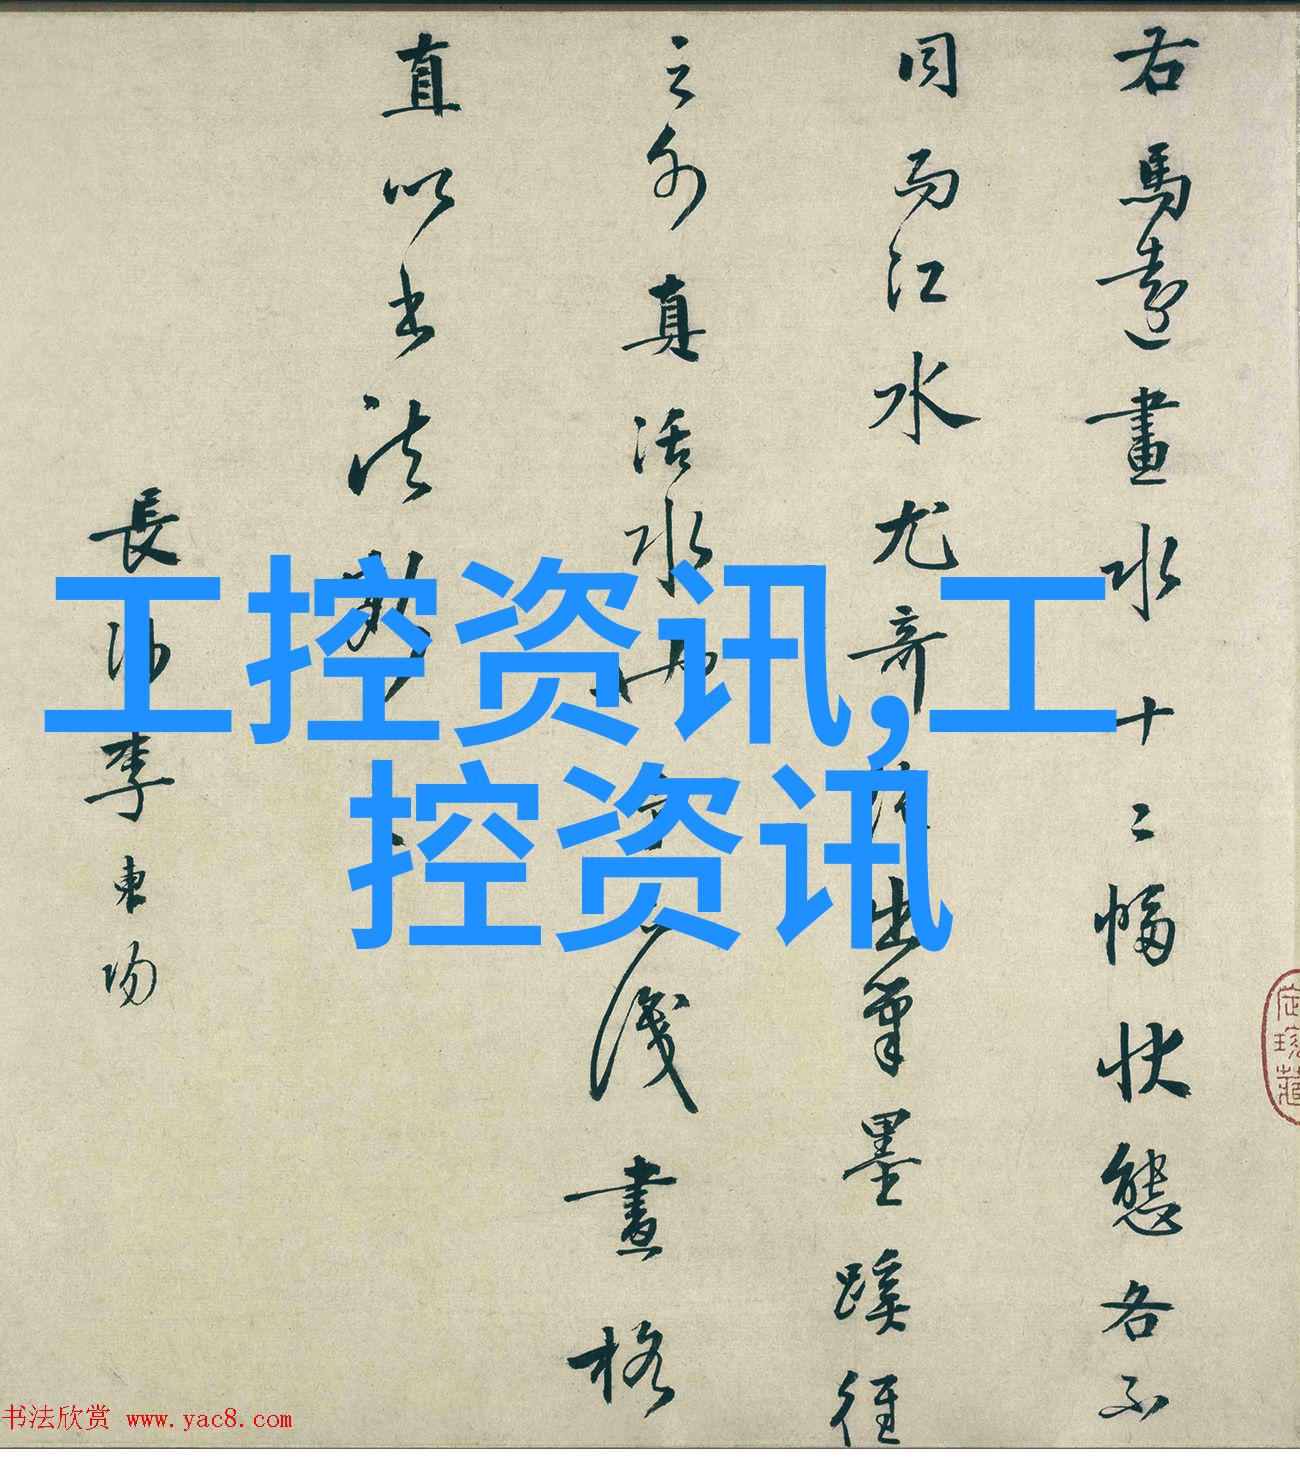 右馬遠畫水十二幅狀態各不
同而江水尤奇出筆墨蹊徑
之外真活水淺畫格
直以書法
長沙李東陽
工控资讯,工
控资讯
书法欣赏 www.yac8.com
珍藏